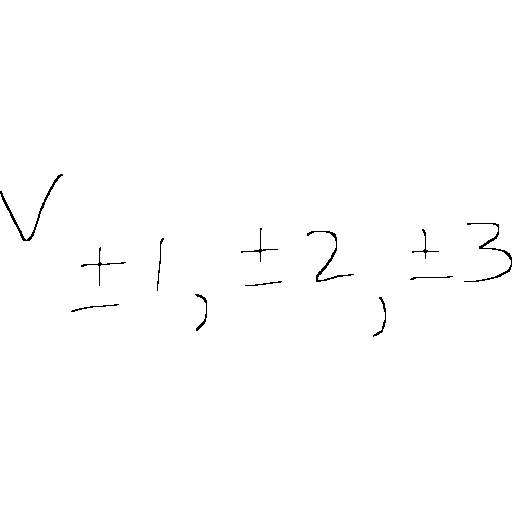 V ±1, ±2, ±3